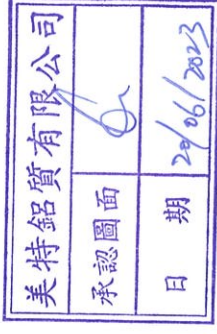 美特鋁質有限公司
承認圖面
日期 20/06/2023